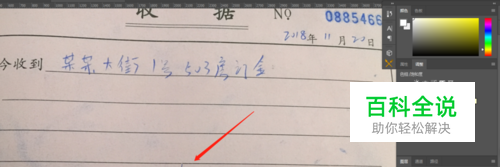 收 据 NO 0885466
2018年11月20日
今收到 某某大街1号503房订金
百科全说
助你轻松解决